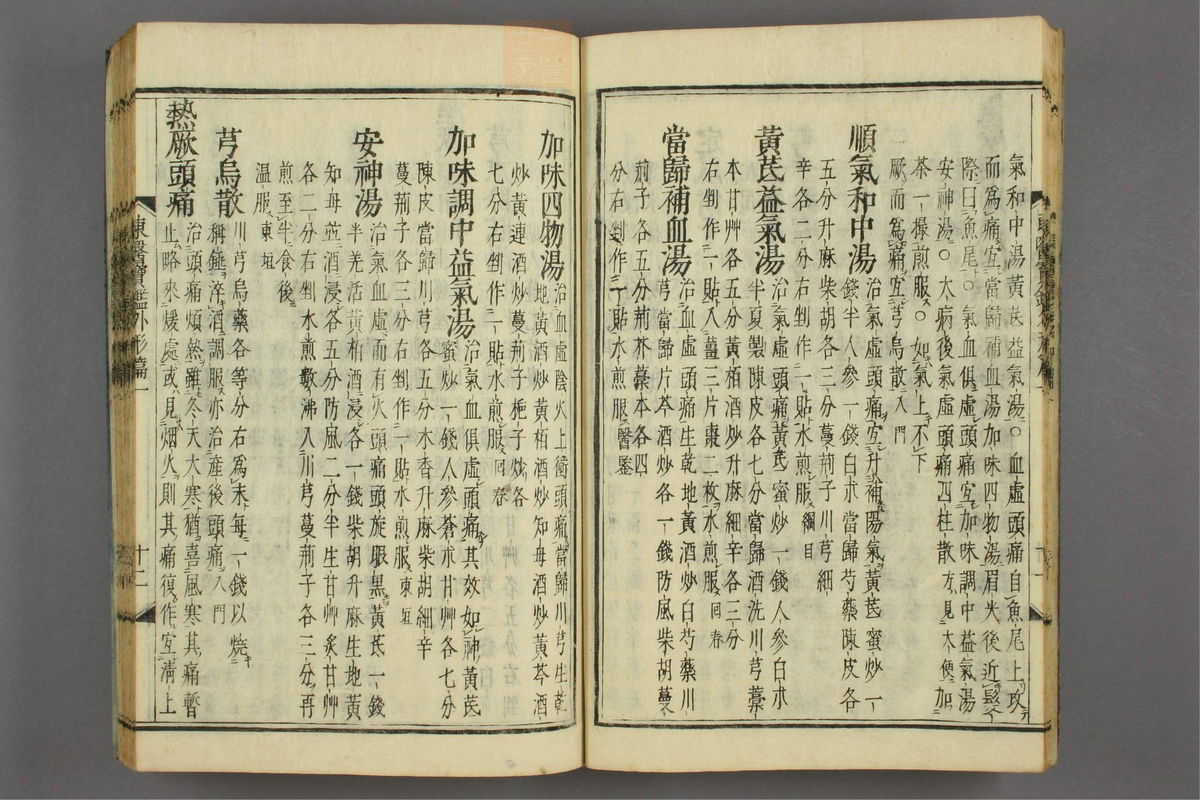 氣和中湯黃芪益氣湯○血虛頭痛自魚尾上攻
而爲痛宜當歸補血湯加味四物湯眉尖後近髮
際曰魚尾○氣血俱虛頭痛宜加味調中益氣湯
安神湯○大病後氣虛頭痛四柱散方見大便加
茶一撮煎服○如氣上不下
厥而爲痛宜芎烏散入門
順氣和中湯治氣虛頭痛宜升補陽氣黃芪蜜炒一
錢半人參一錢白朮當歸芍藥陳皮各
五分升麻柴胡各三分蔓荊子川芎細
辛各二分右剉作一貼水煎服綱目
黃芪益氣湯治氣虛頭痛黃芪蜜炒一錢人參白朮
半夏製陳皮各七分當歸酒洗川芎藁
本甘艸各五分黃栢酒炒升麻細辛各三分
右剉作一貼入薑三片棗二枚水煎服回春
當歸補血湯治血虛頭痛生乾地黃酒炒白芍藥川
芎當歸片芩酒炒各一錢防風柴胡蔓
荊子各五分荊芥藁本各四
分右剉作一貼水煎服醫鑒
加味四物湯治血虛陰火上衝頭痛當歸川芎生乾
地黃酒炒黃栢酒炒知母酒炒黃芩酒
炒黃連酒炒蔓荊子梔子炒各
七分右剉作一貼水煎服回春
加味調中益氣湯治氣血俱虛頭痛其效如神黃芪
蜜炒一錢人參蒼朮甘艸各七分
陳皮當歸川芎各五分木香升麻柴胡細辛
蔓荊子各三分右剉作一貼水煎服東垣
安神湯治氣血虛而有火頭痛頭旋眼黑黃芪一錢
半羌活黃栢酒浸各一錢柴胡升麻生地黃
知母並酒浸各五分防風二分半生甘艸炙甘艸
各二分右剉水煎數沸入川芎蔓荊子各三分再
煎至半食後
温服東垣
芎烏散川芎烏藥各等分右爲末每一錢以燒
稱錘淬酒調服亦治產後頭痛入門
熱厥頭痛治頭痛煩熱雖冬天大寒猶喜風寒其痛暫
止略來煖處或見烟火則其痛復作宜淸上
東醫寶鑑外形篇一
十二